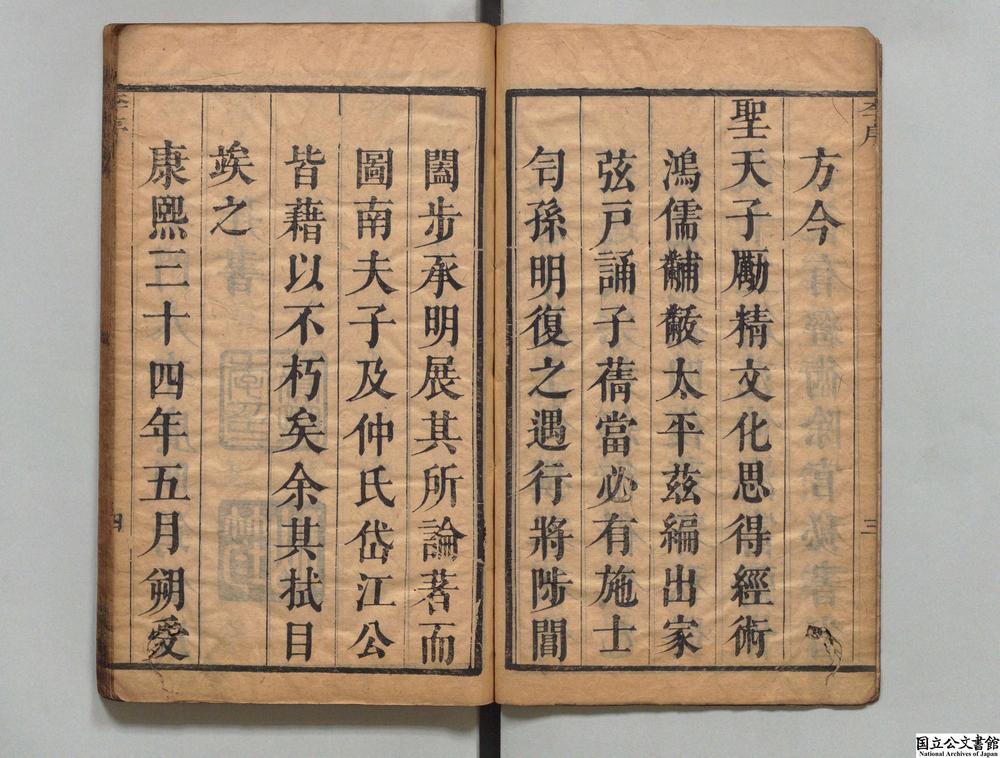 方今
聖天子勵精文化思得經術
鴻儒黼黻太平茲編出家
弦戸誦子蒨當必有施士
匄孫明復之遇行將陟閶
三
闔步承明展其所論著而
圖南夫子及仲氏岱江公
皆藉以不朽矣余其拭目
竢之
康熙三十四年五月朔愛
四
国立公文書館
National Archives of Japan